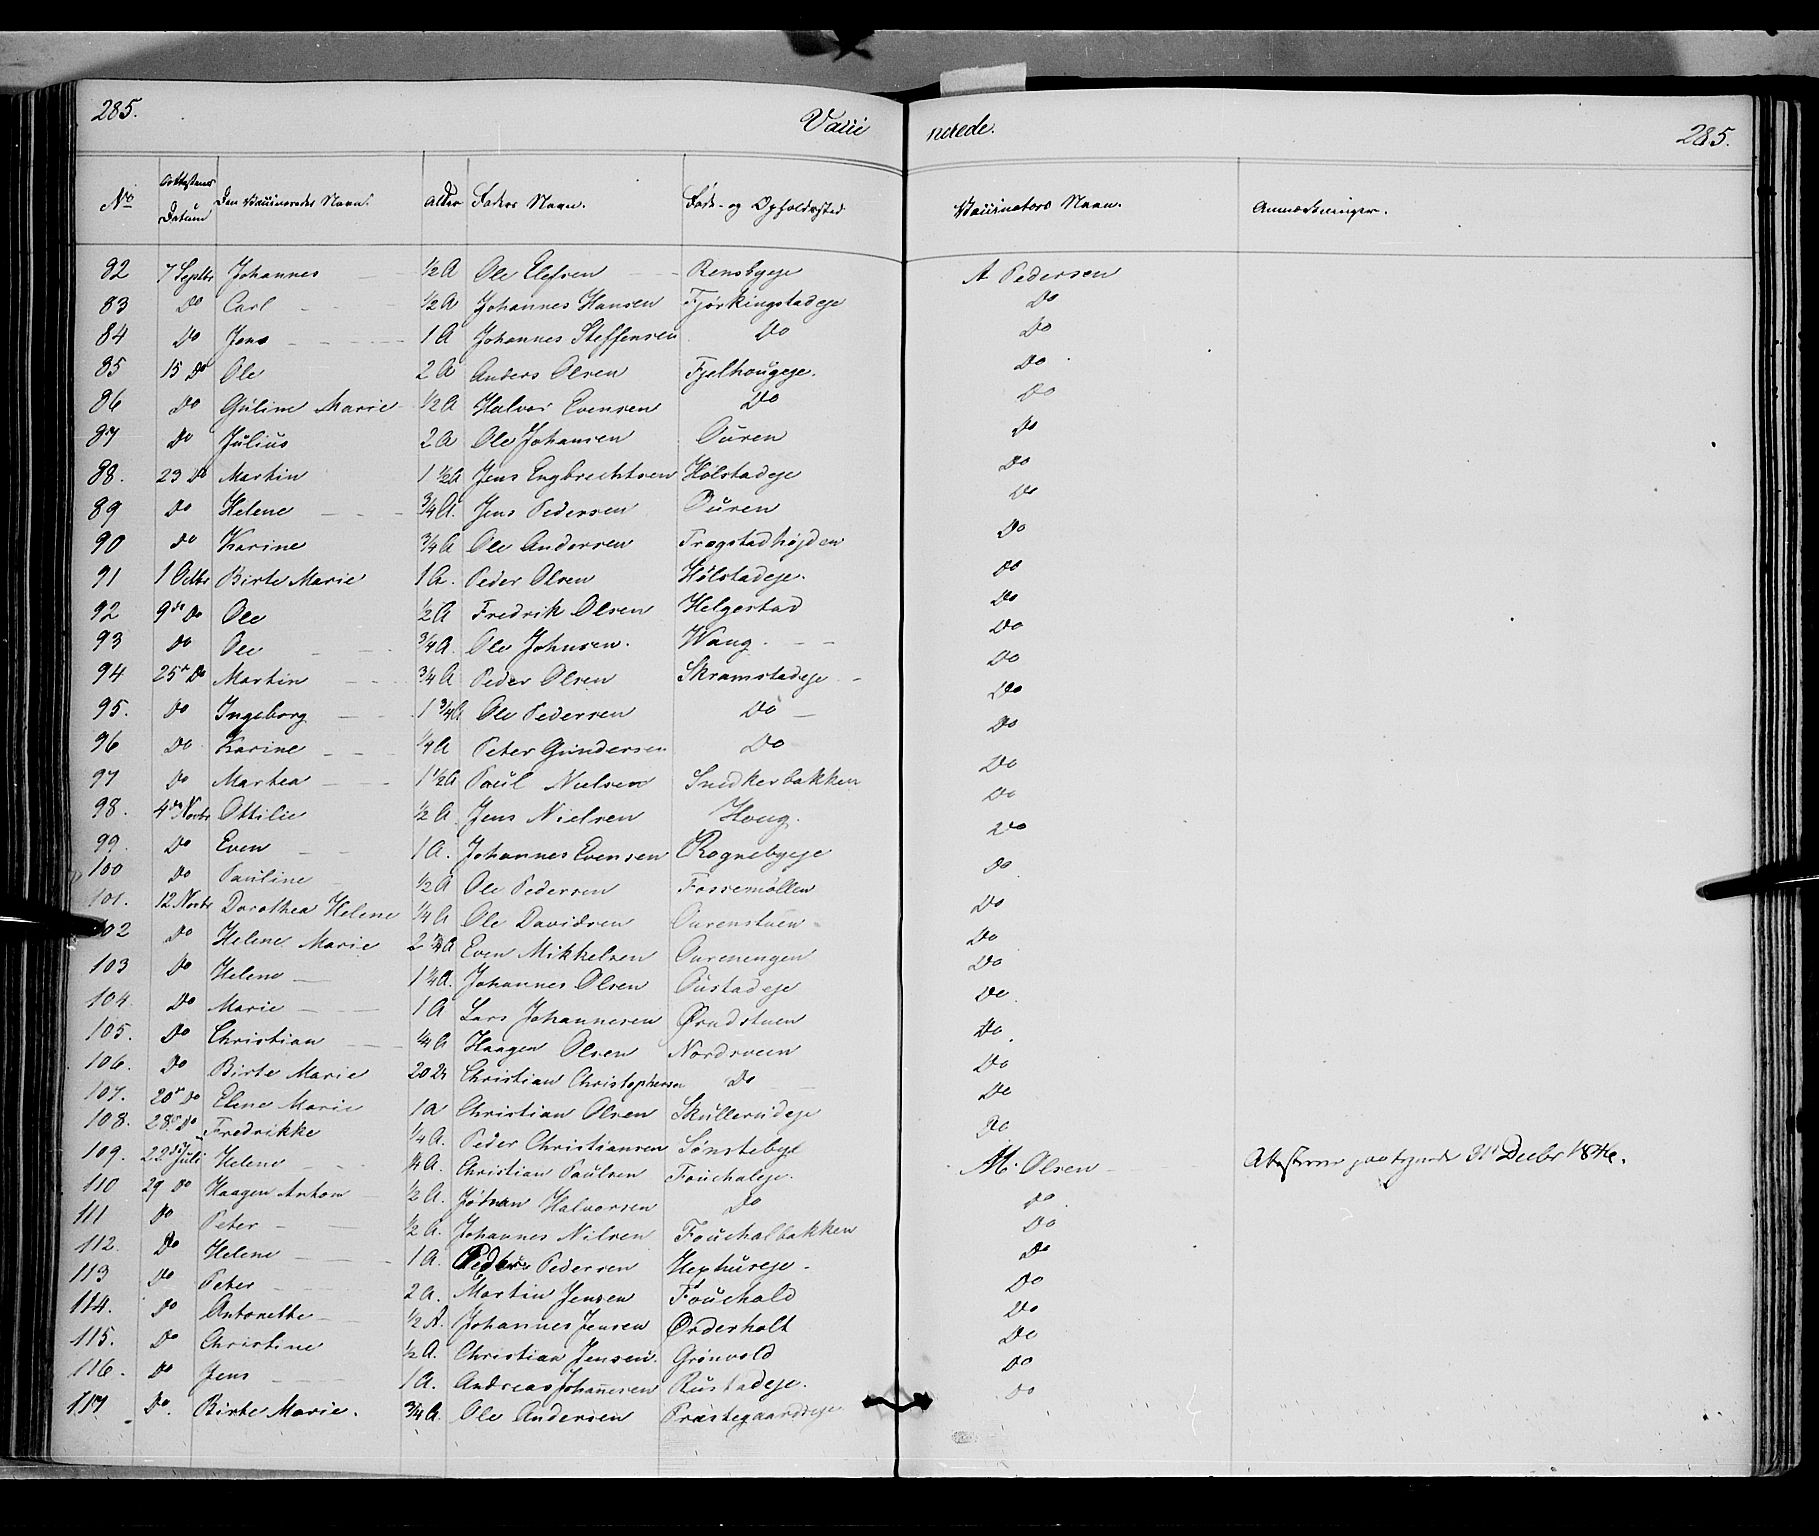 285. Vacci nerede. 285.
No Attestens Datum Den Vaccineredes Navn. Alder Faders Navn. Føde- og Opholdssted Vaccinators Navn. Anmærkninger.
82 7 Septbr Johannes ½ A Ole Elefsen Rensbyeje A Pedersen
83 Do Carl ½ A Johannes Hansen Fjørkingstadeje Do
84 Do Jens 1 A Johannes Steffensen Do Do
85 15 Do Ole 2 A Anders Olsen Fjelhougeje. Do
86 Do Guline Marie ½ A Halvor Evensen Do Do
87 Do Julius 2 A Ole Johansen Ouren Do
88. 23 Do Martin 1 ½ A Jens Engbrechtsen Hølstadeje Do
89 Do Helene ¾ A. Jens Pedersen Ouren Do
90 Do Karine ¾ A Ole Andersen Trøgstadhøjden Do
91 1 Octbr Birte Marie 1 A. Peder Olsen Hølstadeje. Do
92 9de Do Ole ½ A Fredrik Olsen Helgestad Do
93 Do Ole ¾ A. Ole Johnsen. Wang. Do
94 25 Do Martin ¾ A Peder Olsen Skramstadeje Do
95. Do Ingeborg 1 ¾ A Ole Pedersen Do Do
96 Do Karine ¼ A Peter Gundersen Do Do
97 Do Marthea 1 ½ A Poul Nielsen Snedkerbakken Do
98. 4de Novbr Ottilie ½ A. Jens Nielsen Houg. Do
99. Do Even 1 A. Johannes Evensen Rognebyeje Do
100 Do Pauline ½ A Ole Pedersen Fossemøllen Do
101. 12 Novbr Dorothea Helene ¼ A Ole Davidsen Ourenstuen Do
102 Do Helene Marie 2 ¾ A Even Mikkelsen Ourenengen Do
103 Do Helene 1 ¼ A. Johannes Olsen Oustadeje Do
104. Do Marie 1 A Lars Johannesen Ørudstuen Do.
105. Do Christian ¼ A Haagen Olsen Nordsveen Do.
106. Do Birte Marie 20 A Christian Christophersen Do Do
107. 20 Do Elene Marie 1 A Christian Olsen Skullerudeje Do
108. 28 Do Fredrikke ¼ A. Peder Christiansen Sønstebye Do
109. 22de Juli Helene ¼ A. Christian Paulsen Fouchaleje. M. Olsen 31 Decbr 1846.
110 29 Do Haagen Anton ½ A. Halvorsen Do Do
111 Do Peter ½ A. Johannes Nilsen Fouchalbakken Do
112. Do Helene 1 A. Peder Pedersen Hexhuseje. Do
113 Do Peter 2 A. Martin Jensen Fouchald Do
114. Do Antonette ½ A. Johannes Jensen Ørderholt Do
115. Do Christine ½ A. Christian Jensen. Grønvold Do
116. Do Jens 1 A. Andreas Johannesen Rustadeje. Do
117. Do. Birte Marie. ¾ A. Ole Andersen Præstegaardseje Do